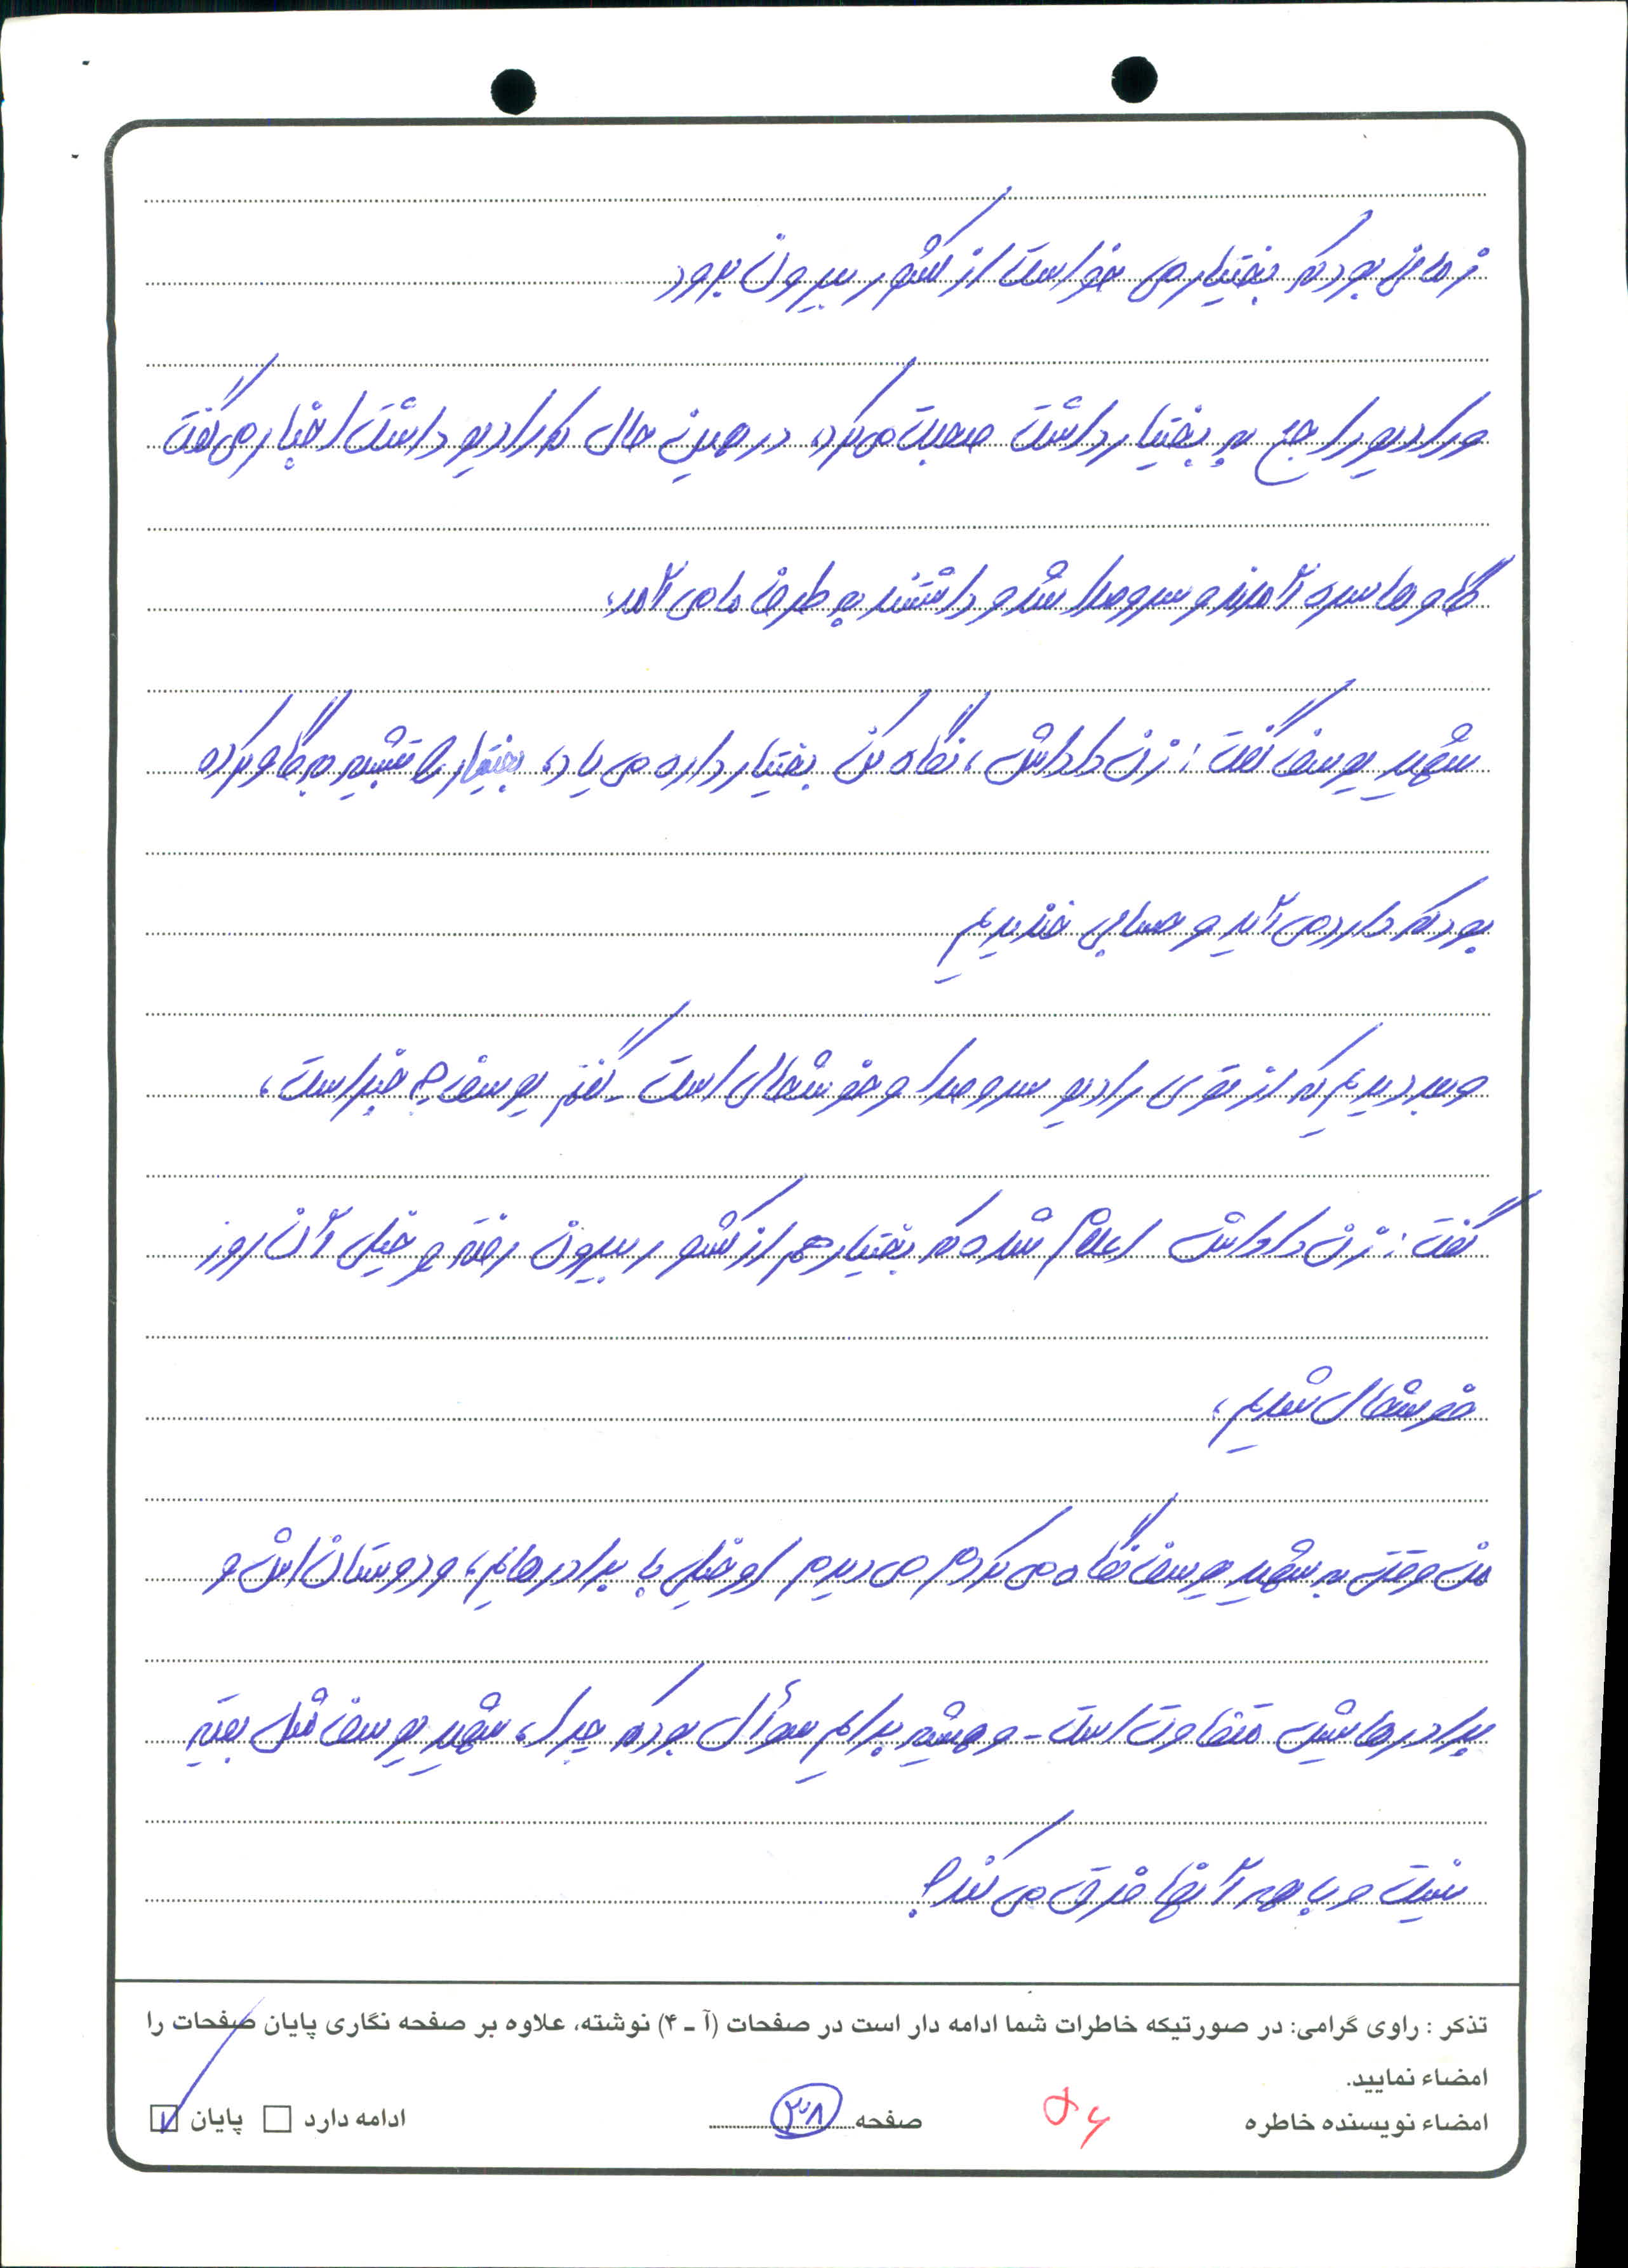 زمانی بود که بختیار می خواست از کشور بیرون برود
و رادیو راجع به بختیار داشت صحبت می کرد، در همین حال که رادیو داشت اخبار می گفت
گاو ما سره آمدند و سر و صدا شد و داشتند به طرف ما می آمد،
شهید یوسف گفت : زن داداش ، نگاه کن بختیار داره می یاد، بختیار را تشبیه به گاو کرده
بود که دارد می آید و حسابی خندیدیم
و بعد دیدیم که از توی رادیو سر و صدا و خوشحالی است - گفتم یوسف چه خبر است ،
گفت : زن داداش اعلام شده که بختیار هم از کشور بیرون رفته و خیلی آن روز
خوشحال شدیم ،
من وقتی به شهید یوسف نگاه می کردم می دیدم او خیلی با برادرهایم ، و دوستان اش و
برادرهایش متفاوت است - و همیشه برایم سوأل بود که چرا ، شهید یوسف مثل بقیه
نیست و با همه آنها فرق می کند ؟
تذکر : راوی گرامی: در صورتیکه خاطرات شما ادامه دار است در صفحات (آ ـ ۴) نوشته، علاوه بر صفحه نگاری پایان صفحات را
امضاء نمایید.
امضاء نویسنده خاطره ۵۶ صفحه ۳۸ ادامه دارد پایان